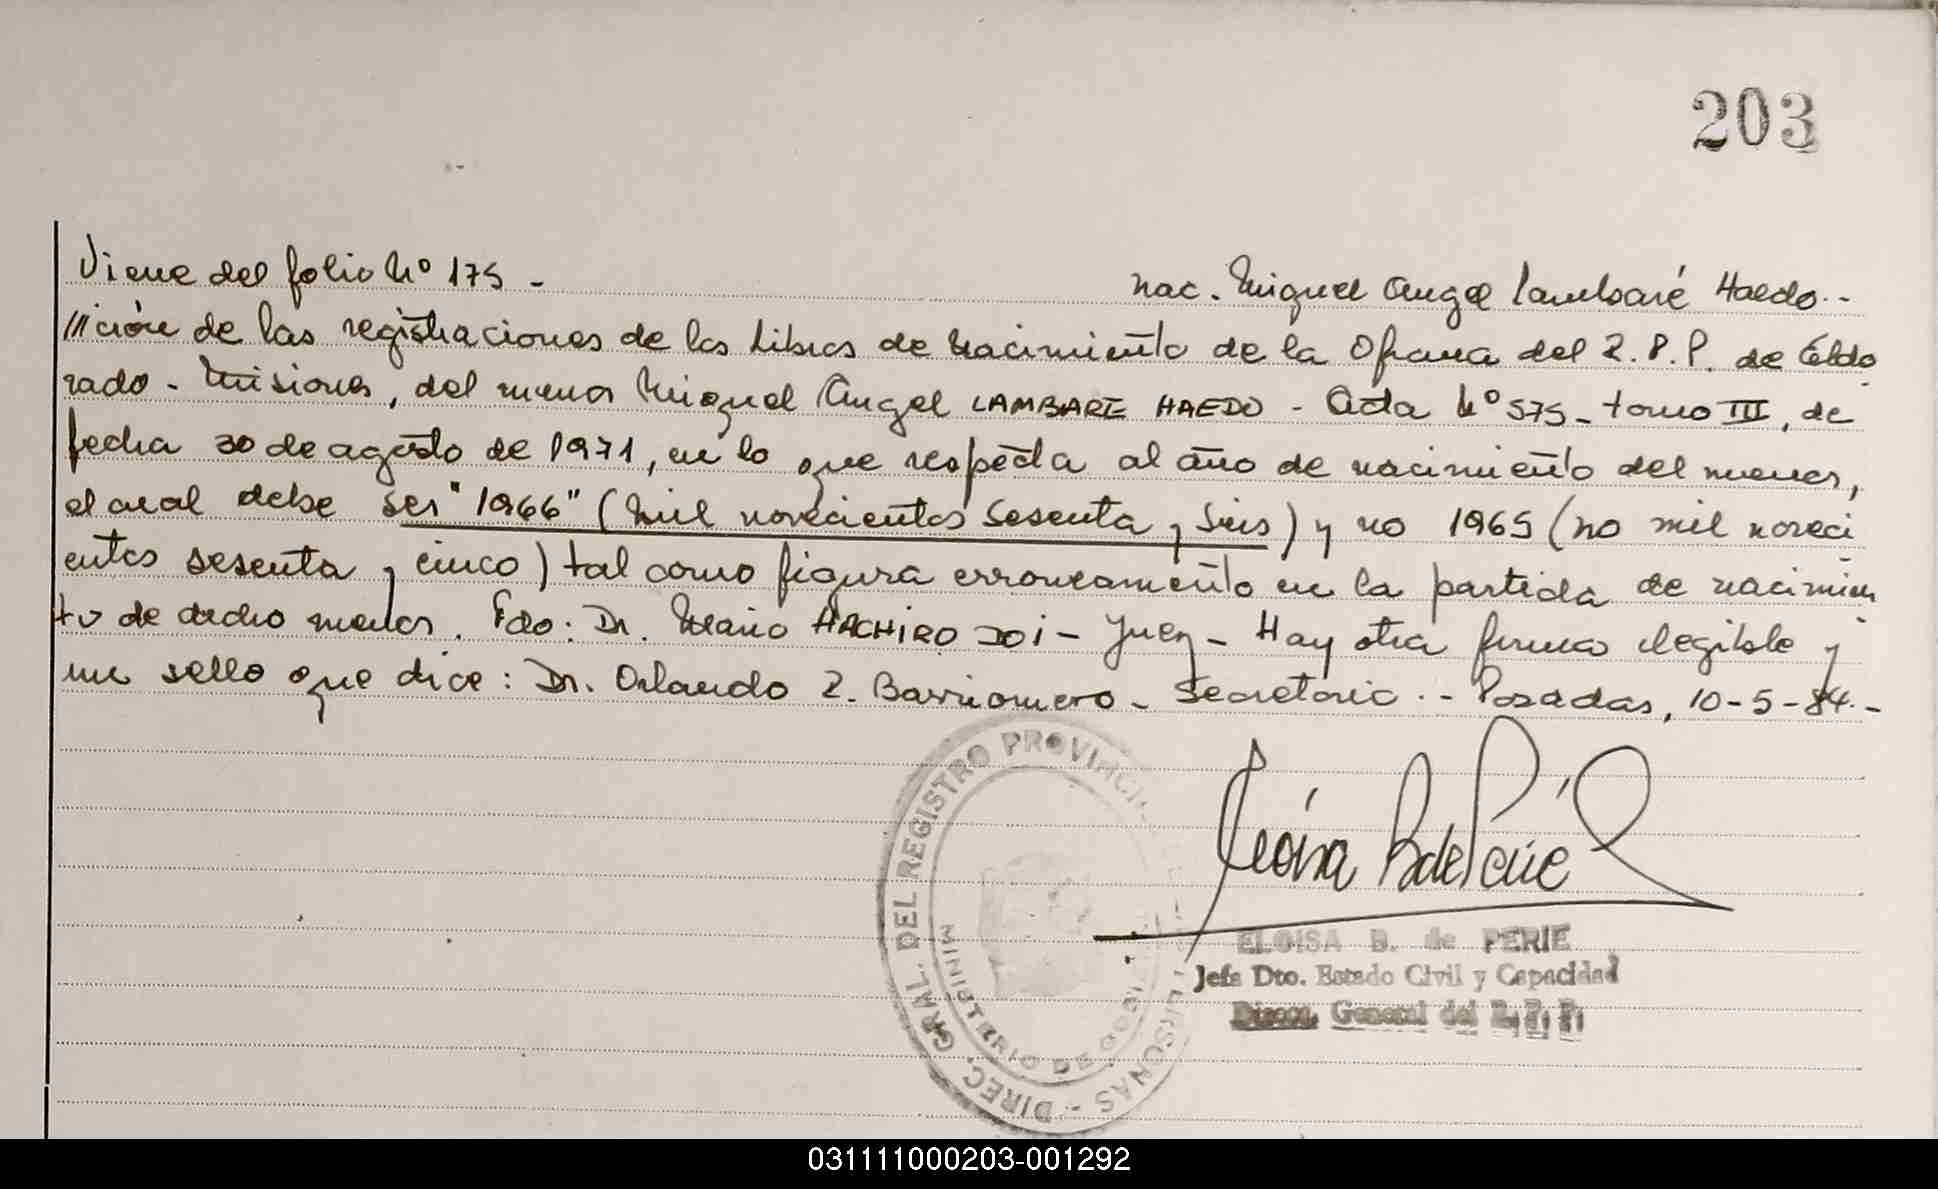 203
Viene del folio Nº 175 -
nac. Miguel Angel Lambaré Haedo.-
///ción de las registraciones de los Libros de Nacimiento de la Oficina del R.P.P. de Eldo
rado - Misiones, del menor Miguel Angel LAMBARE HAEDO - Acta Nº 575 - tomo III, de
fecha 30 de agosto de 1971, en lo que respecta al año de nacimiento del menor,
el cual debe ser "1966" (mil novecientos sesenta y seis) y no 1965 (no mil noveci
entos sesenta y cinco) tal como figura erroneamente en la partida de nacimien
to de dicho menor. Fdo: Dr. Mario HACHIRO DOI - Juez - Hay otra firma ilegible y
un sello que dice: Dr. Orlando R. Barrionuevo - Secretario.- Posadas, 10-5-84.-
DIREC. GRAL. DEL REGISTRO PROVINCI PERSONAS -
MINISTERIO DE GOBI
ELOISA B. de PERIE
Jefa Dto. Estado Civil y Capacidad
Direcc. General del R. P. P.
031111000203-001292